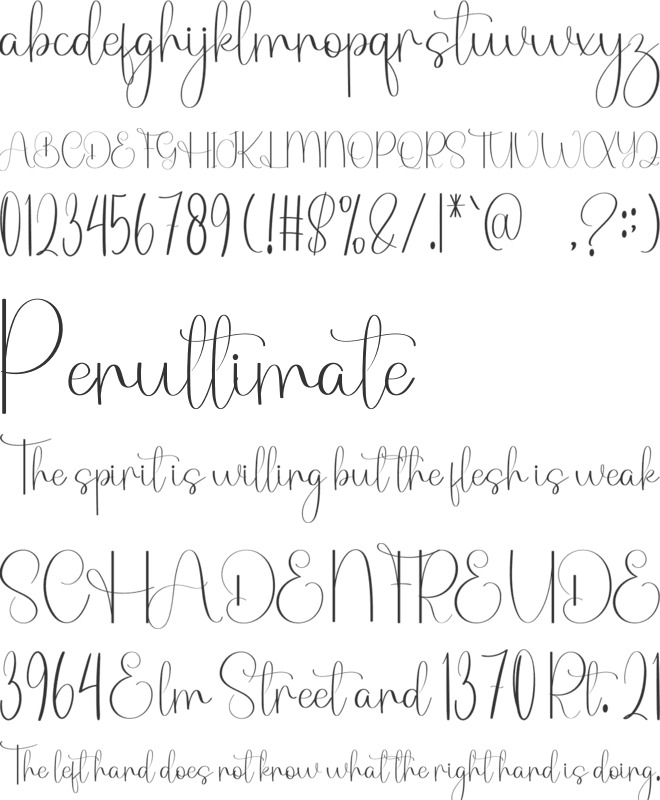 abcdefghijklmnopqrstuvwxyz
ABCDEFGHIJKLMNOPQRSTUVWXYZ
0123456789(!#$%&/.|*`@ ,?:;)
Penultimate
The spirit is willing but the flesh is weak
SCHADENFREUDE
3964 Elm Street and 1370 Rt. 21
The left hand does not know what the right hand is doing.